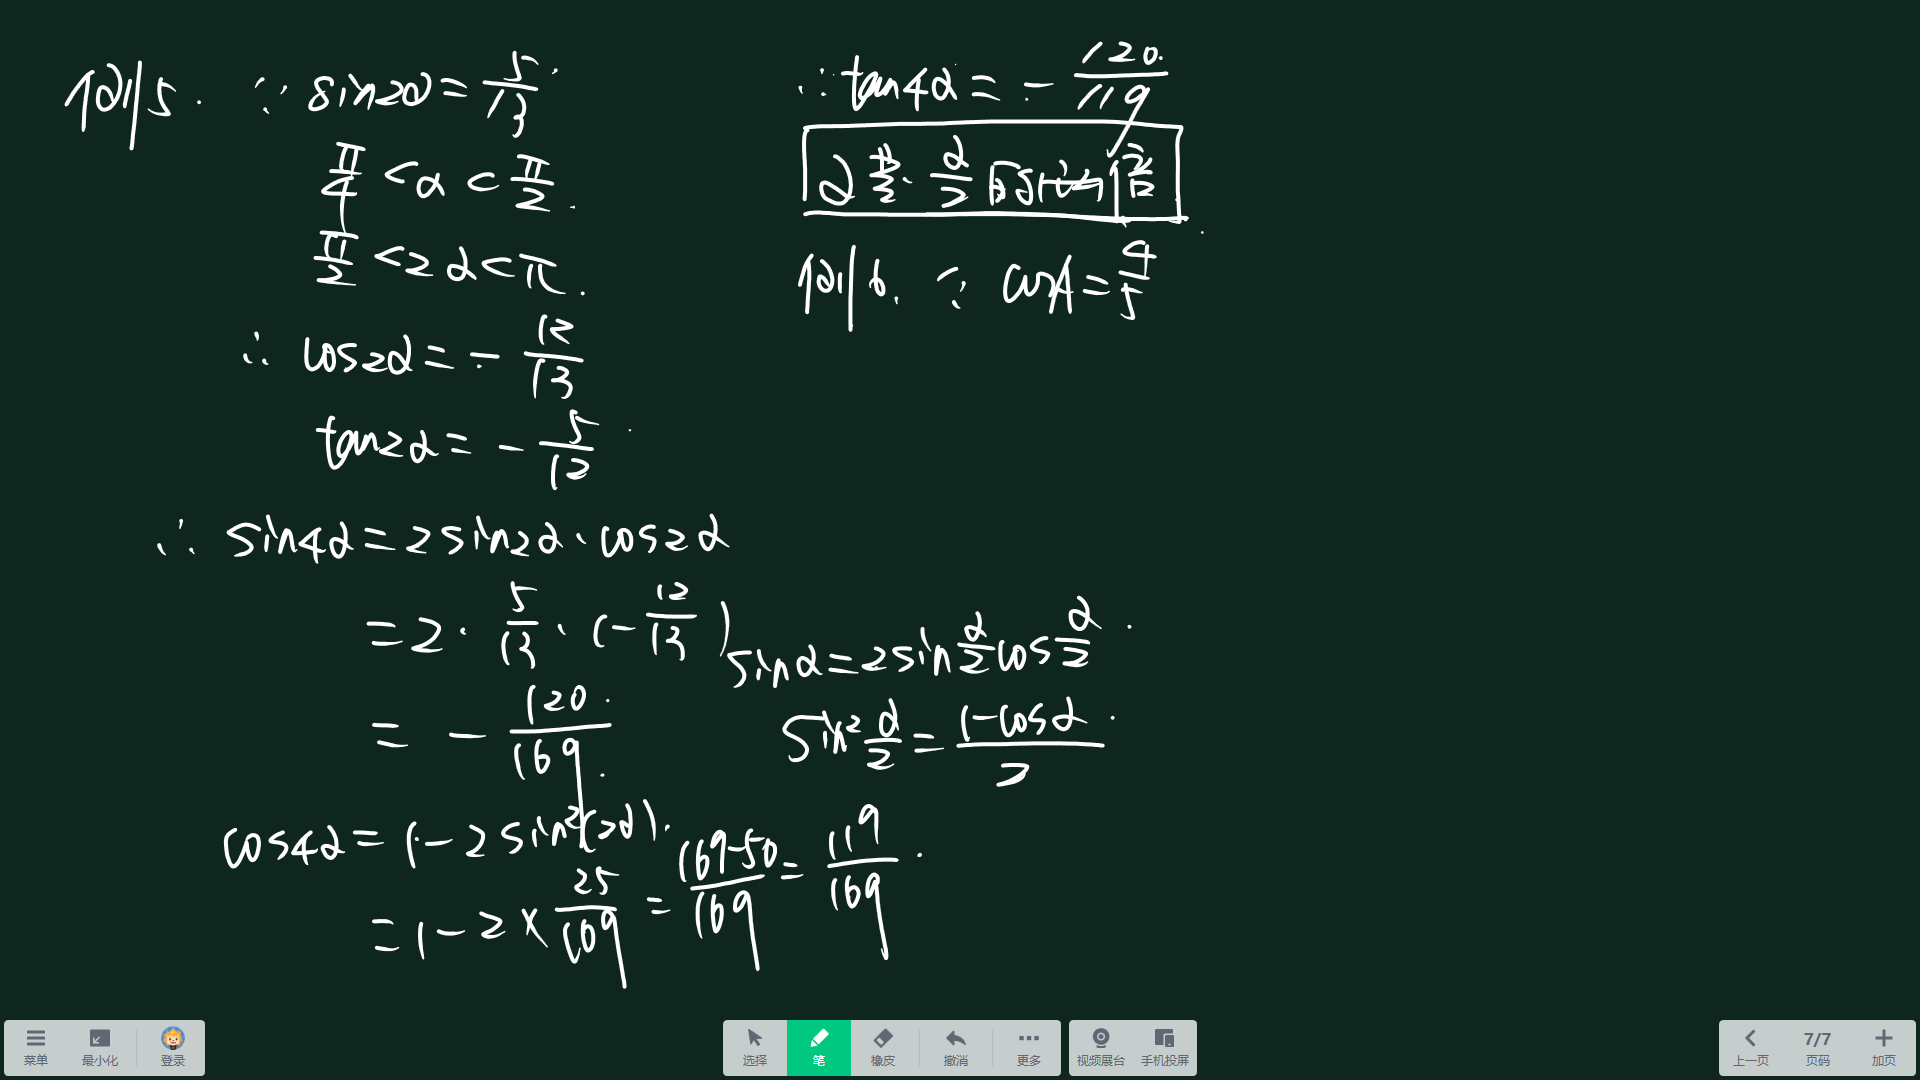 例5. ∵ sin2α = 5/13.
π/4 < α < π/2.
π/2 < 2α < π.
∴ cos2α = - 12/13
tan2α = - 5/12.
∴ sin4α = 2sin2α·cos2α
= 2·5/13·(-12/13)
= - 120/169.
cos4α = 1-2sin²(2α).
= 1-2×25/169 = 169-50/169 = 119/169.
∴ tan4α = - 120/119
例6. ∵ cosA = 4/5
sinα = 2sin α/2 cos α/2.
sin² α/2 = 1-cosα/2.
菜单
最小化
登录
选择
笔
橡皮
撤消
更多
视频展台
手机投屏
上一页
7/7
页码
加页